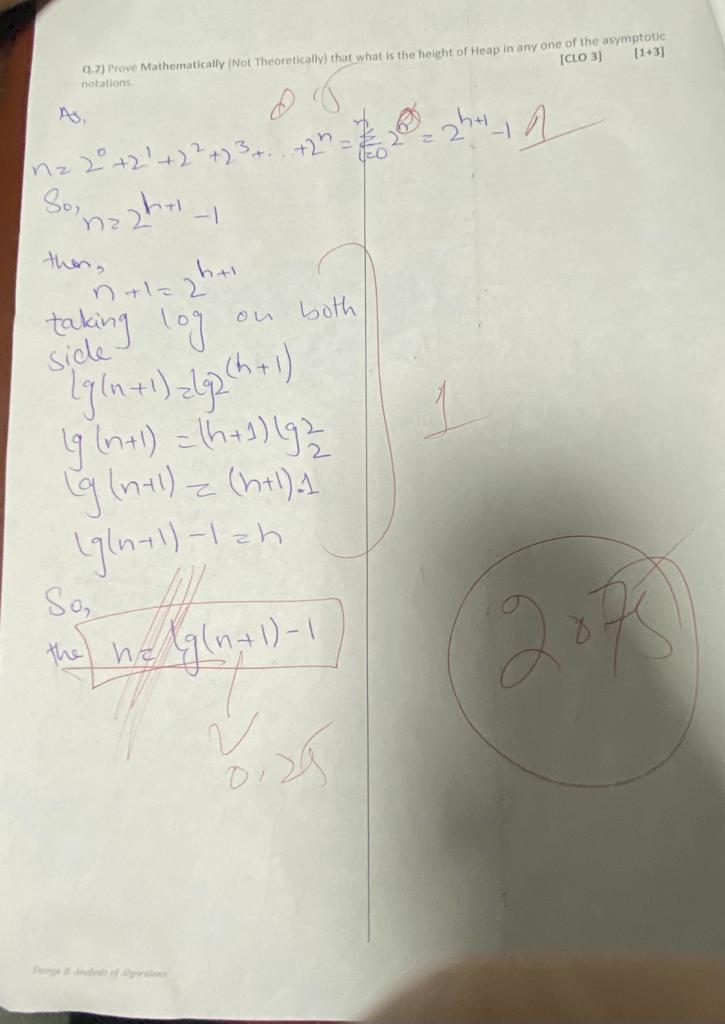 Q.2) Prove Mathematically (Not Theoretically) that what is the height of Heap in any one of the asymptotic
notations. [CLO 3] [1+3]
As,
n = 2^0 + 2^1 + 2^2 + 2^3 + ... + 2^h = Σ_{i=0}^{h} 2^i = 2^{h+1} - 1 1
So,
n = 2^{h+1} - 1
then,
n + 1 = 2^{h+1}
taking log on both
side
lg(n+1) = lg2^{(h+1)}
lg(n+1) = (h+1) lg_2 2
1
lg(n+1) = (h+1).1
lg(n+1) - 1 = h
So,
the h = lg(n+1) - 1
2.75
0.25
Design & Analysis of Algorithms